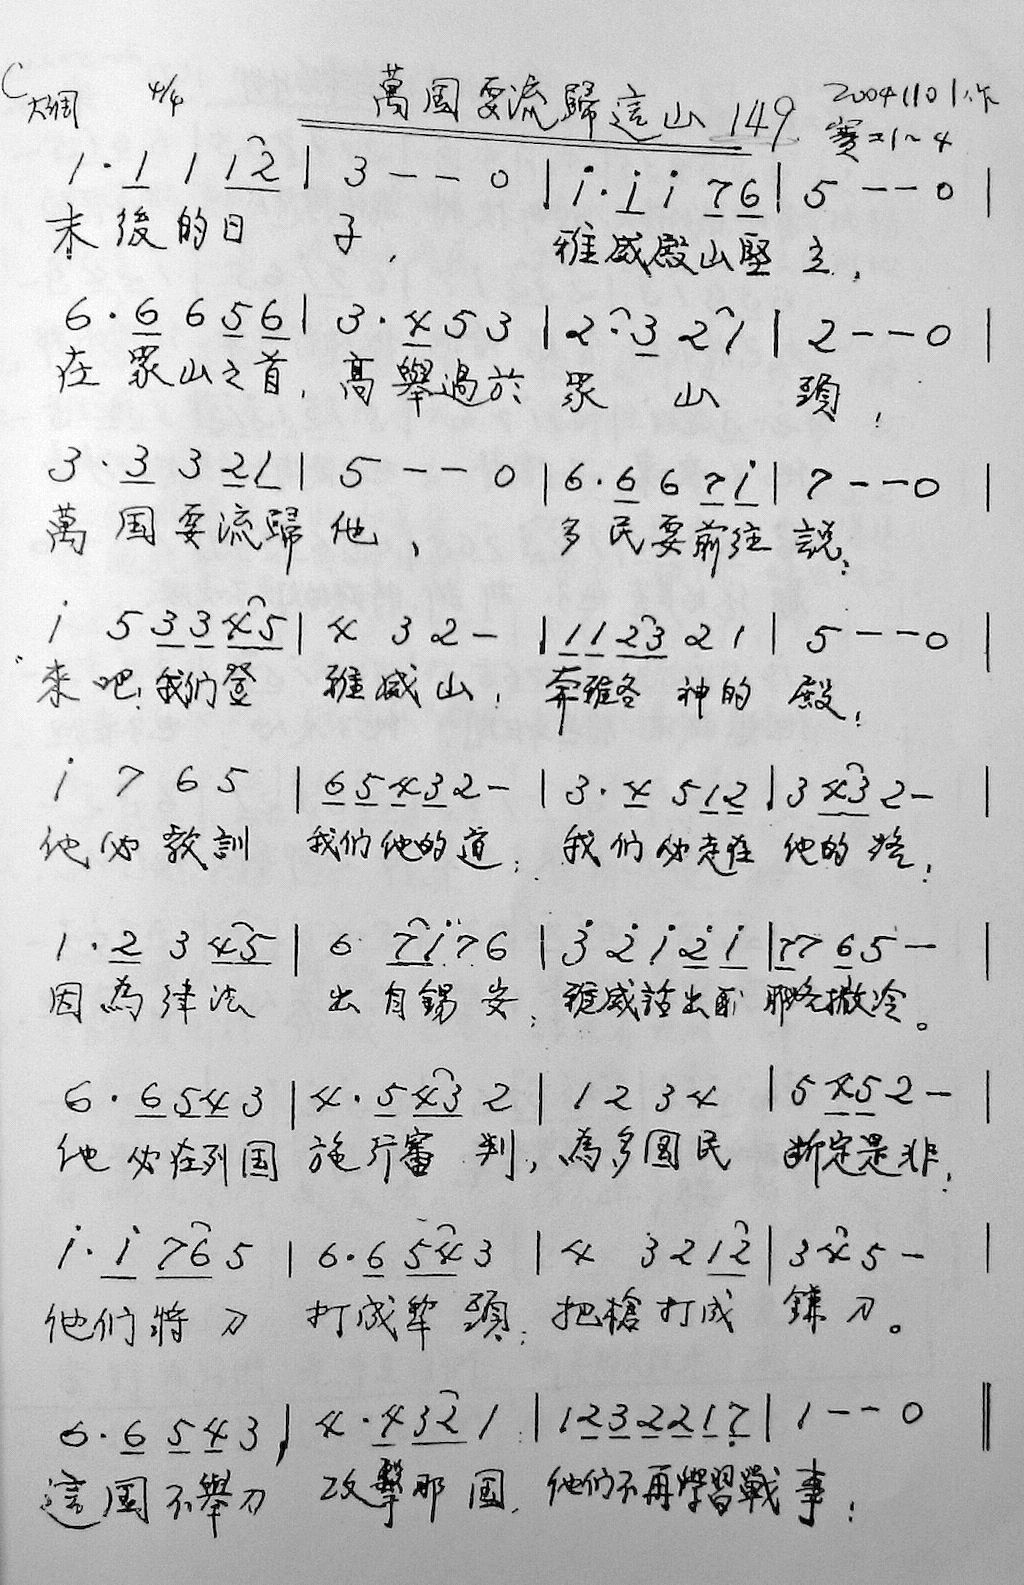 C大調 4/4 萬国要流歸這山 149 20041101作
賽二1~4
1·1 1 12 | 3 - - 0 | i·i i 76 | 5 - - 0 |
末後的日 子, 雅威殿山堅立,
6·6 6 56 | 3·4 5 3 | 2·3 21 | 2 - - 0 |
在眾山之首,高舉過於眾 山 頭,
3·3 3 21 | 5 - - 0 | 6·6 6 7i | 7 - - 0 |
萬国要流歸他, 多民要前往說:
i 5 3 3 45 | 4 3 2 - | 1 1 23 2 1 | 5 - - 0 |
來吧!我们登 雅威山, 奔雅各 神的 殿,
i 7 6 5 | 6 5 4 3 2 - | 3·4 5 12 | 3 43 2 - |
他必教訓 我们他的道; 我们必走在 他的路,
1·2 3 45 | 6 7i 7 6 | 3̇ 2̇ i 2̇ i | 7 7 6 5 - |
因為律法 出自錫安; 雅威話出自 耶路撒冷。
6·6 5 4 3 | 4·5 43 2 | 1 2 3 4 | 5 4 5 2 - |
他必在列国 施行審 判,為多國民 断定是非,
i·i 76 5 | 6·6 54 3 | 4 3 2 12 | 3 4 5 - |
他们將 刀 打成犂 頭;把槍打成 鎌刀。
6·6 5 4 3 | 4·4 32 1 | 1 2 3 2 2 1 7̣ | 1 - - 0 ‖
這国不舉刀 攻擊那国,他们不再學習戰事;